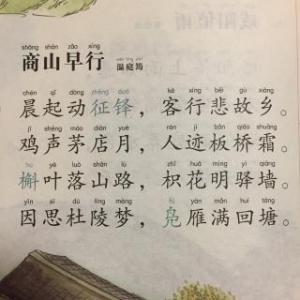 shāng shān zǎo xíng
商山早行 温庭筠
chén qǐ dòng zhēng duó kè xíng bēi gù xiāng
晨起动征铎，客行悲故乡。
jī shēng máo diàn yuè rén jì bǎn qiáo shuāng
鸡声茅店月，人迹板桥霜。
hú yè luò shān lù zhǐ huā míng yì qiáng
槲叶落山路，枳花明驿墙。
yīn sī dù líng mèng fú yàn mǎn huí táng
因思杜陵梦，凫雁满回塘。